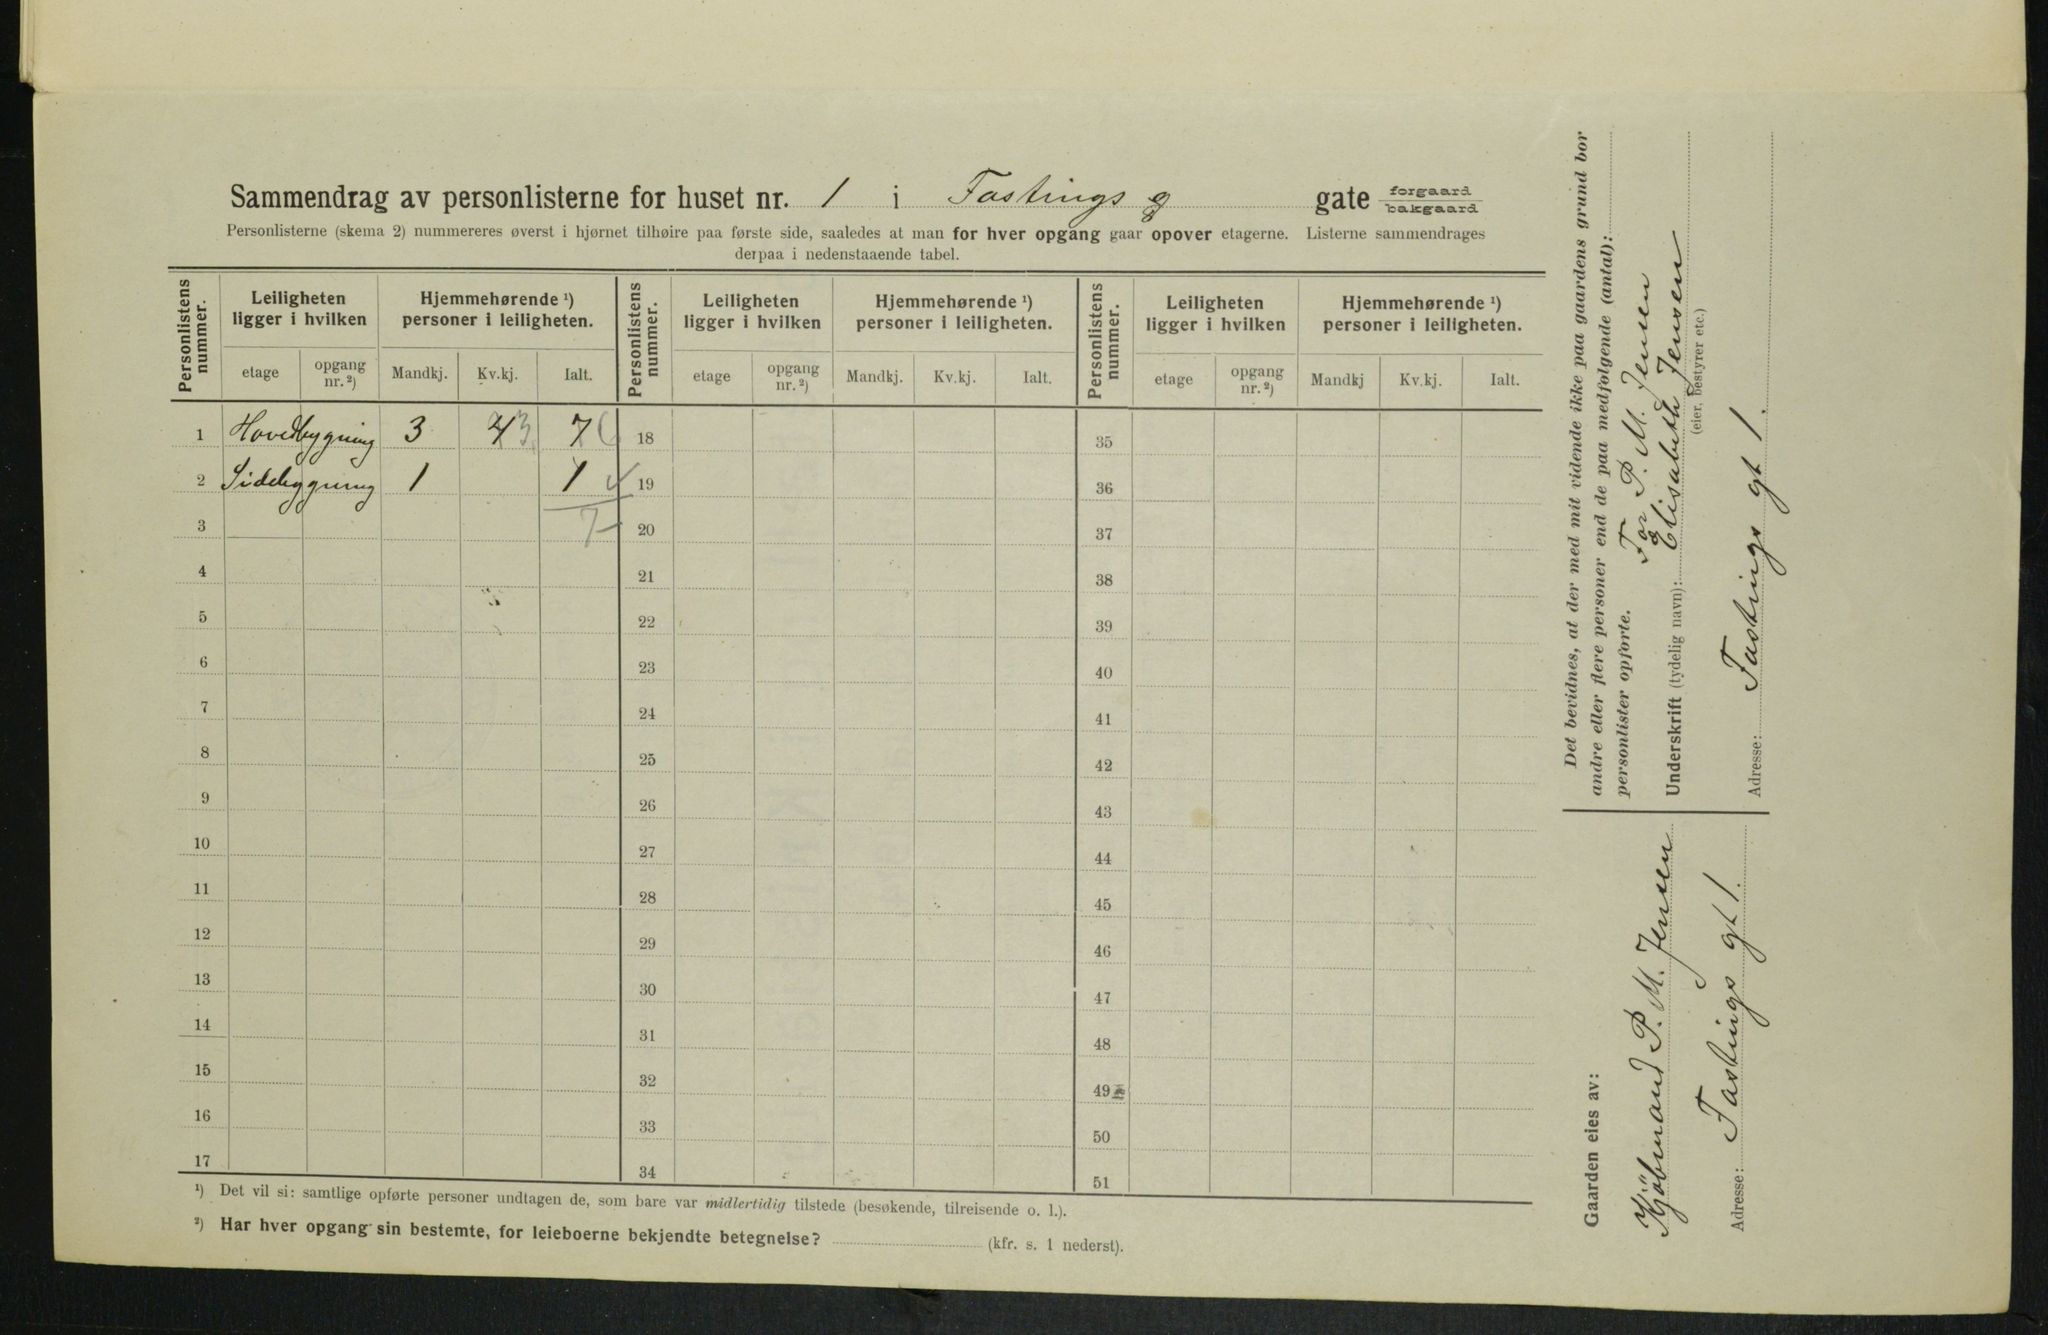 Sammendrag av personlisterne for huset nr. 1 i Fastings g gate forgaard
bakgaard
Personlisterne (skema 2) nummereres øverst i hjørnet tilhøire paa første side, saaledes at man for hver opgang gaar opover etagerne. Listerne sammendrages
derpaa i nedenstaaende tabel.
Personlistens nummer. Leiligheten ligger i hvilken Hjemmehørende ¹) personer i leiligheten. Personlistens nummer. Leiligheten ligger i hvilken Hjemmehørende ¹) personer i leiligheten. Personlistens nummer. Leiligheten ligger i hvilken Hjemmehørende ¹) personer i leiligheten.
etage opgang nr. ²) Mandkj. Kv.kj. Ialt. etage opgang nr. ²) Mandkj. Kv.kj. Ialt. etage opgang nr. ²) Mandkj Kv.kj. Ialt.
1 Hovedbygning 3 4 3 7 6 18 35
2 Sidebygning 1 1 19 36
3 7 20 37
4 21 38
5 22 39
6 23 40
7 24 41
8 25 42
9 26 43
10 27 44
11 28 45
12 29 46
13 30 47
14 31 48
15 32 49
16 33 50
17 34 51
¹) Det vil si: samtlige opførte personer undtagen de, som bare var midlertidig tilstede (besøkende, tilreisende o. l.).
²) Har hver opgang sin bestemte, for leieboerne bekjendte betegnelse? (kfr. s. 1 nederst).
Det bevidnes, at der med mit vidende ikke paa gaardens grund bor
andre eller flere personer end de paa medfølgende (antal):
personlister opførte.
For P. M. Jensen
Underskrift (tydelig navn): Elisabeth Jensen
(eier, bestyrer etc.)
Adresse: Fastings gt 1.
Gaarden eies av:
Kjöbmand P. M. Jensen
Adresse: Fastings gt 1.